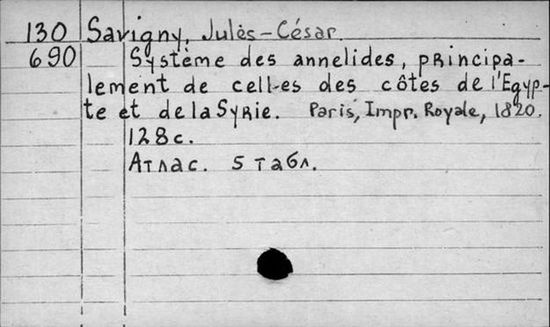 130 Savigny, Jules-César.
690 Système des annelides, principa-
lement de celles des côtes de l'Egyp-
te et de la Syrie. Paris, Impr. Royale, 1820.
128 с.
Атлас. 5 табл.